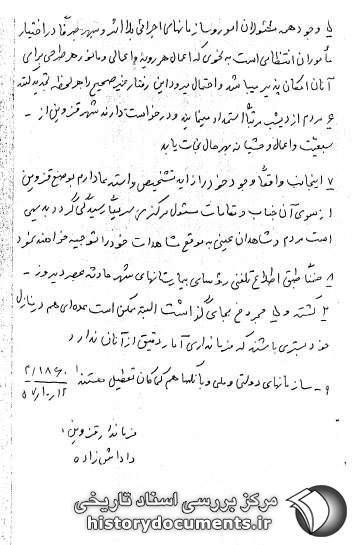 با وجود همه مسئولان امور و سازمانهای اجرائی بلااثر و شهر صرفاً در اختیار
مأموران انتظامی است به نحوی که اعمال هر رویه و اعمالی و مانور هر طرحی برای
آنان امکان پذیر میباشد و احتمال میرود این رفتار غیر صحیح را هر لحظه تجدید کنند
۶ مردم از دیشب مرتباً استمداد مینمایند و درخواست دارند شهر قزوین از
سبعیت و اعمال وحشیانه بهر حال نجات یابد
۷ اینجانب واقعاً وجود خود را زاید تشخیص و استدعا دارم بوضع قزوین
از سوی آن جناب و مقامات مسئول مرکز سریعاً رسیدگی گردد بدیهی
است مردم و شاهدان عینی به موقع مشاهدات خود را توجیه خواهند نمود
۸ ضمناً طبق اطلاع تلفنی رؤسای بیمارستانهای شهر حادثه عصر دیروز
۲ کشته و مجروح بجای گذاشت البته ممکن است عده‌ای هم در منازل
خود بستری باشند که فرمانداری آمار دقیق از آنان ندارد
۹- سازمانهای دولتی و ملی و بانکها هم کماکان تعطیل هستند
فرماندار قزوین
داداش زاده
مرکز بررسی اسناد تاریخی
historydocuments.ir